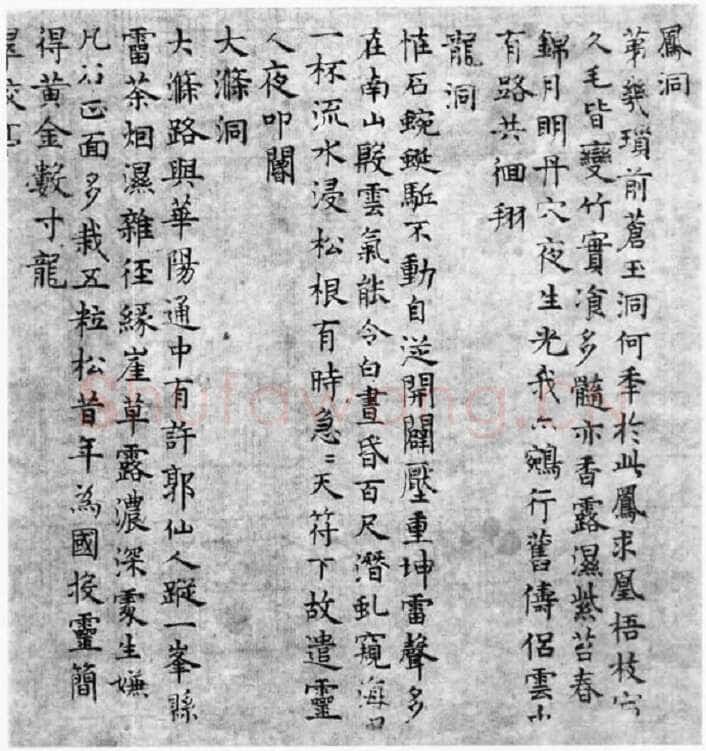 鳳洞
第幾瑣前蒼玉洞何季於此鳳求凰梧枝
久毛皆變竹實飡多髓亦香露濕紫苔春
錦月明丹穴夜生光我亦鵷行舊儔侶雲
有路共徊翔
龍洞
怪石蜿蜒駈不動自從開闢壓重坤雷聲多
在南山殷雲氣能令白晝昏百尺潛虬窺海
一杯流水浸松根有時急〻天符下故遣靈
人夜叩閽
大滌洞
大滌路與華陽通中有許郭仙人蹤一峯縣
雷茶烟濕雜徑緣崖草露濃深處生嫌
凡正面多栽五粒松昔年為國投靈簡
得黃金數寸龍
shufawang.cn